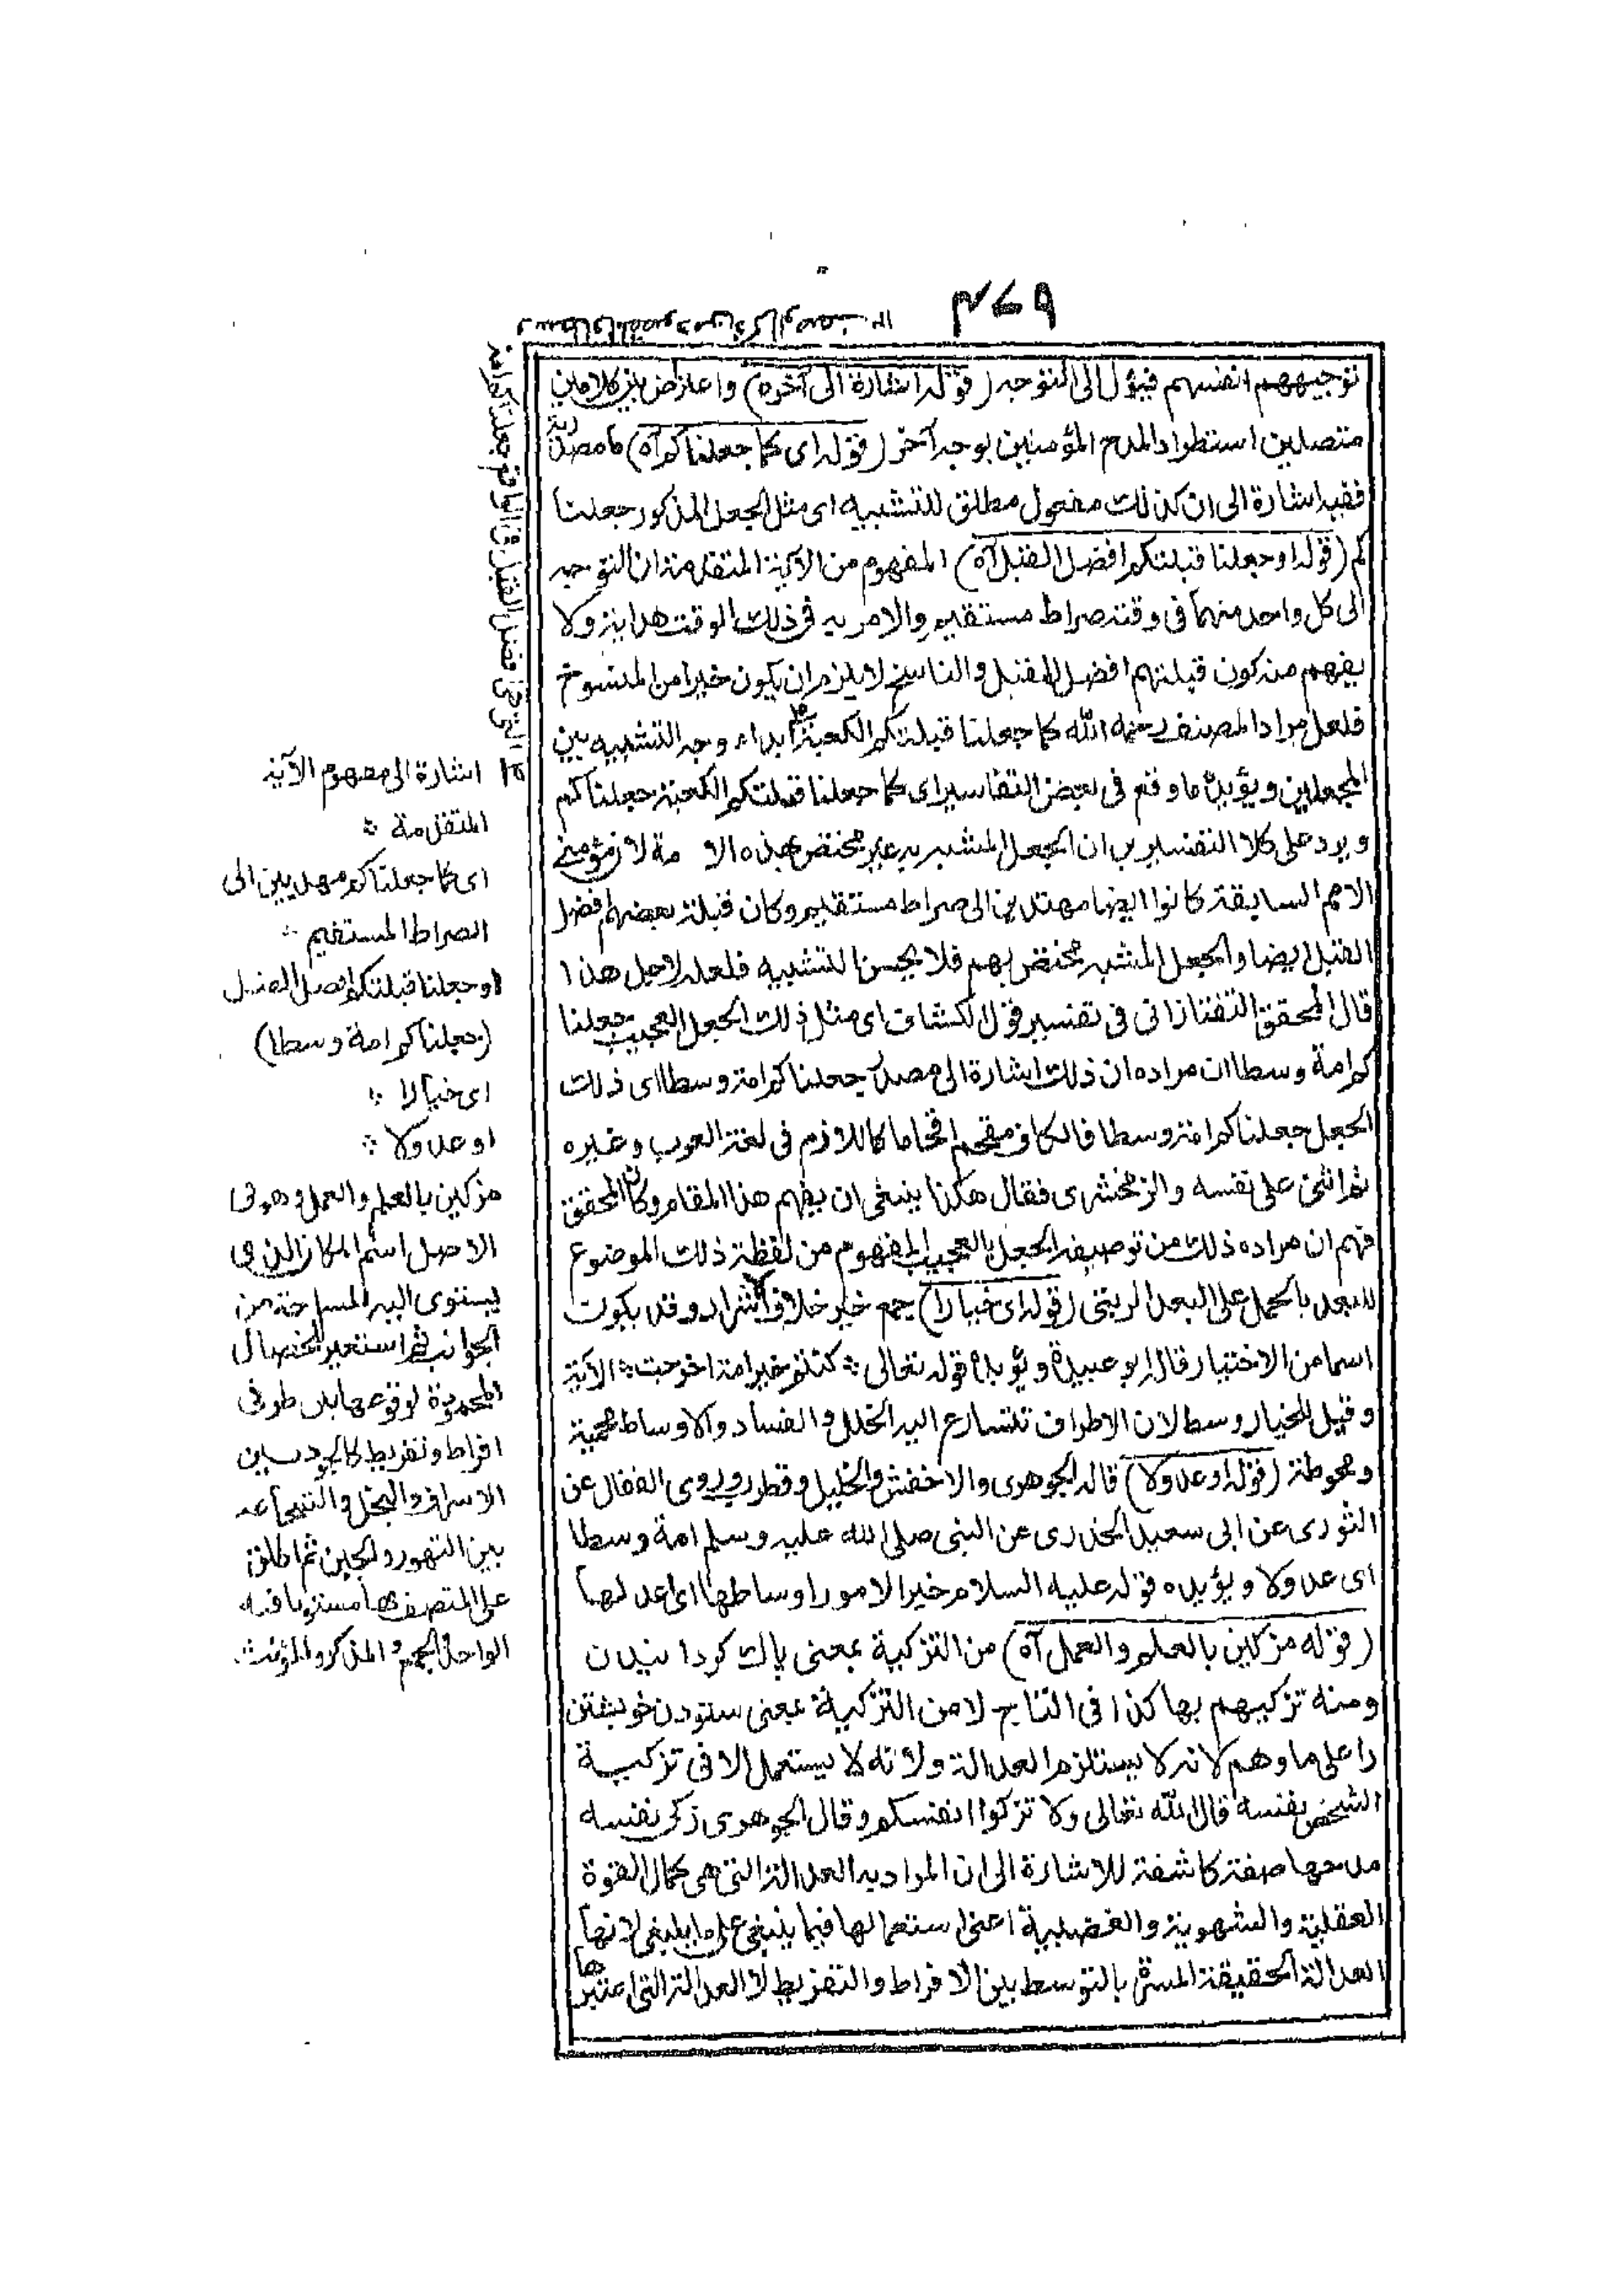 ٤٦٩
توجيههم انفسهم فيؤل الى التوجه (قوله اشارة الى آخره) واعتراض بين كلامين
متصلين استطرادا لمدح المؤمنين بوجه آخر (قوله اى كما جعلناكم آه) ما مصدرية
ففيه اشارة الى ان كذلك مفعول مطلق للتشبيه اى مثل الجعل المذكور جعلنا
كم (قوله او جعلنا قبلتكم افضل القبل آه) المفهوم من الآية المتقدمة ان التوجه
الى كل واحد منهما فى وقته صراط مستقيم والامر به فى ذلك الوقت هداية ولا
يفهم منه كون قبلتهم افضل القبل والناسخ لا يلزم ان يكون خيرا من المنسوخ
فلعل مراد المصنف رحمه الله كما جعلنا قبلتكم الكعبة ابداء وجه التشبيه بين
الجعلين ويؤيده ما وقع فى بعض التفاسير اى كما جعلنا قبلتكم الكعبة جعلناكم
ويرد على كلا التفسيرين ان الجعل المشبه به غير مختص بهذه الا مة لان مؤمنى
الامم السابقة كانوا ايضا مهتدين الى صراط مستقيم وكان قبلة بعضهم افضل
القبل ايضا والجعل المشبه مختص بهم فلا يحسن التشبيه فلعله لاجل هذا
قال المحقق التفتازانى فى تفسير قول الكشاف اى مثل ذلك الجعل العجيب جعلنا
كم امة وسطا ان مراده ان ذلك اشارة الى مصدر جعلناكم امة وسطا اى ذلك
الجعل جعلناكم امة وسطا فالكاف مقحم اقحاما كاللازم فى لغة العرب وغيره
ثم اثنى على نفسه والزمخشرى فقال هكذا ينبغى ان يفهم هذا المقام وكان المحقق
فهم ان مراده ذلك من توصيفه الجعل بالعجيب المفهوم من لفظة ذلك الموضوع
للبعد بالحمل على البعد الرتبى (قوله اى خيارا) جمع خير خلاف الاشرار وقد يكون
اسما من الاختيار قال ابو عبيدة ويؤيده قوله تعالى ؞ كنتم خير امة اخرجت ؞ الآية
وقيل للخيار وسط لان الاطراف تتسارع اليه الخلل والفساد والاوساط محمية
ومحوطة (قوله او عدولا) قاله الجوهرى والاخفش والخليل وقطرب وروى القفال عن
الثورى عن ابى سعيد الخدرى عن النبى صلى الله عليه وسلم امة وسطا
اى عدولا ويؤيده قوله عليه السلام خير الامور اوساطها اى اعدلها
(قوله مزكين بالعلم والعمل آه) من التزكية بمعنى پاك كردانيدن
ومنه تزكيهم بها كذا فى التاج لا من التزكية بمعنى ستودن خويشتن
را على ما وهم لانه لا يستلزم العدالة ولانه لا يستعمل الا فى تزكية
الشخص نفسه قال الله تعالى ولا تزكوا انفسكم وقال الجوهرى زكى نفسه
مدحها صفة كاشفة للاشارة الى ان المراد به العدالة التى هى كمال القوة
العقلية والشهوية والغضبية اعنى استعمالها فيما ينبغى على ما ينبغى لانها
العدالة الحقيقة المسمى بالتوسط بين الافراط والتفريط لا العدالة التى اعتبرها
اشارة الى مفهوم الآية
المتقدمة ؞
اى كما جعلناكم مهديين الى
الصراط المستقيم ؞
او جعلنا قبلتكم افضل القبل
(جعلناكم امة وسطا)
اى خيارا ؞
او عدولا ؞
مزكين بالعلم والعمل وهو فى
الاصل اسم المكان الذى
يستوى اليه المساحة من
الجوانب ثم استعير للخصال
المحمودة لوقوعها بين طرفى
افراط وتفريط كالجود بين
الاسراف والبخل والشجاعة
بين التهور والجبن ثم اطلق
على المتصف بها مستويا فيه
الواحد والجمع والمذكر والمؤنث ؞